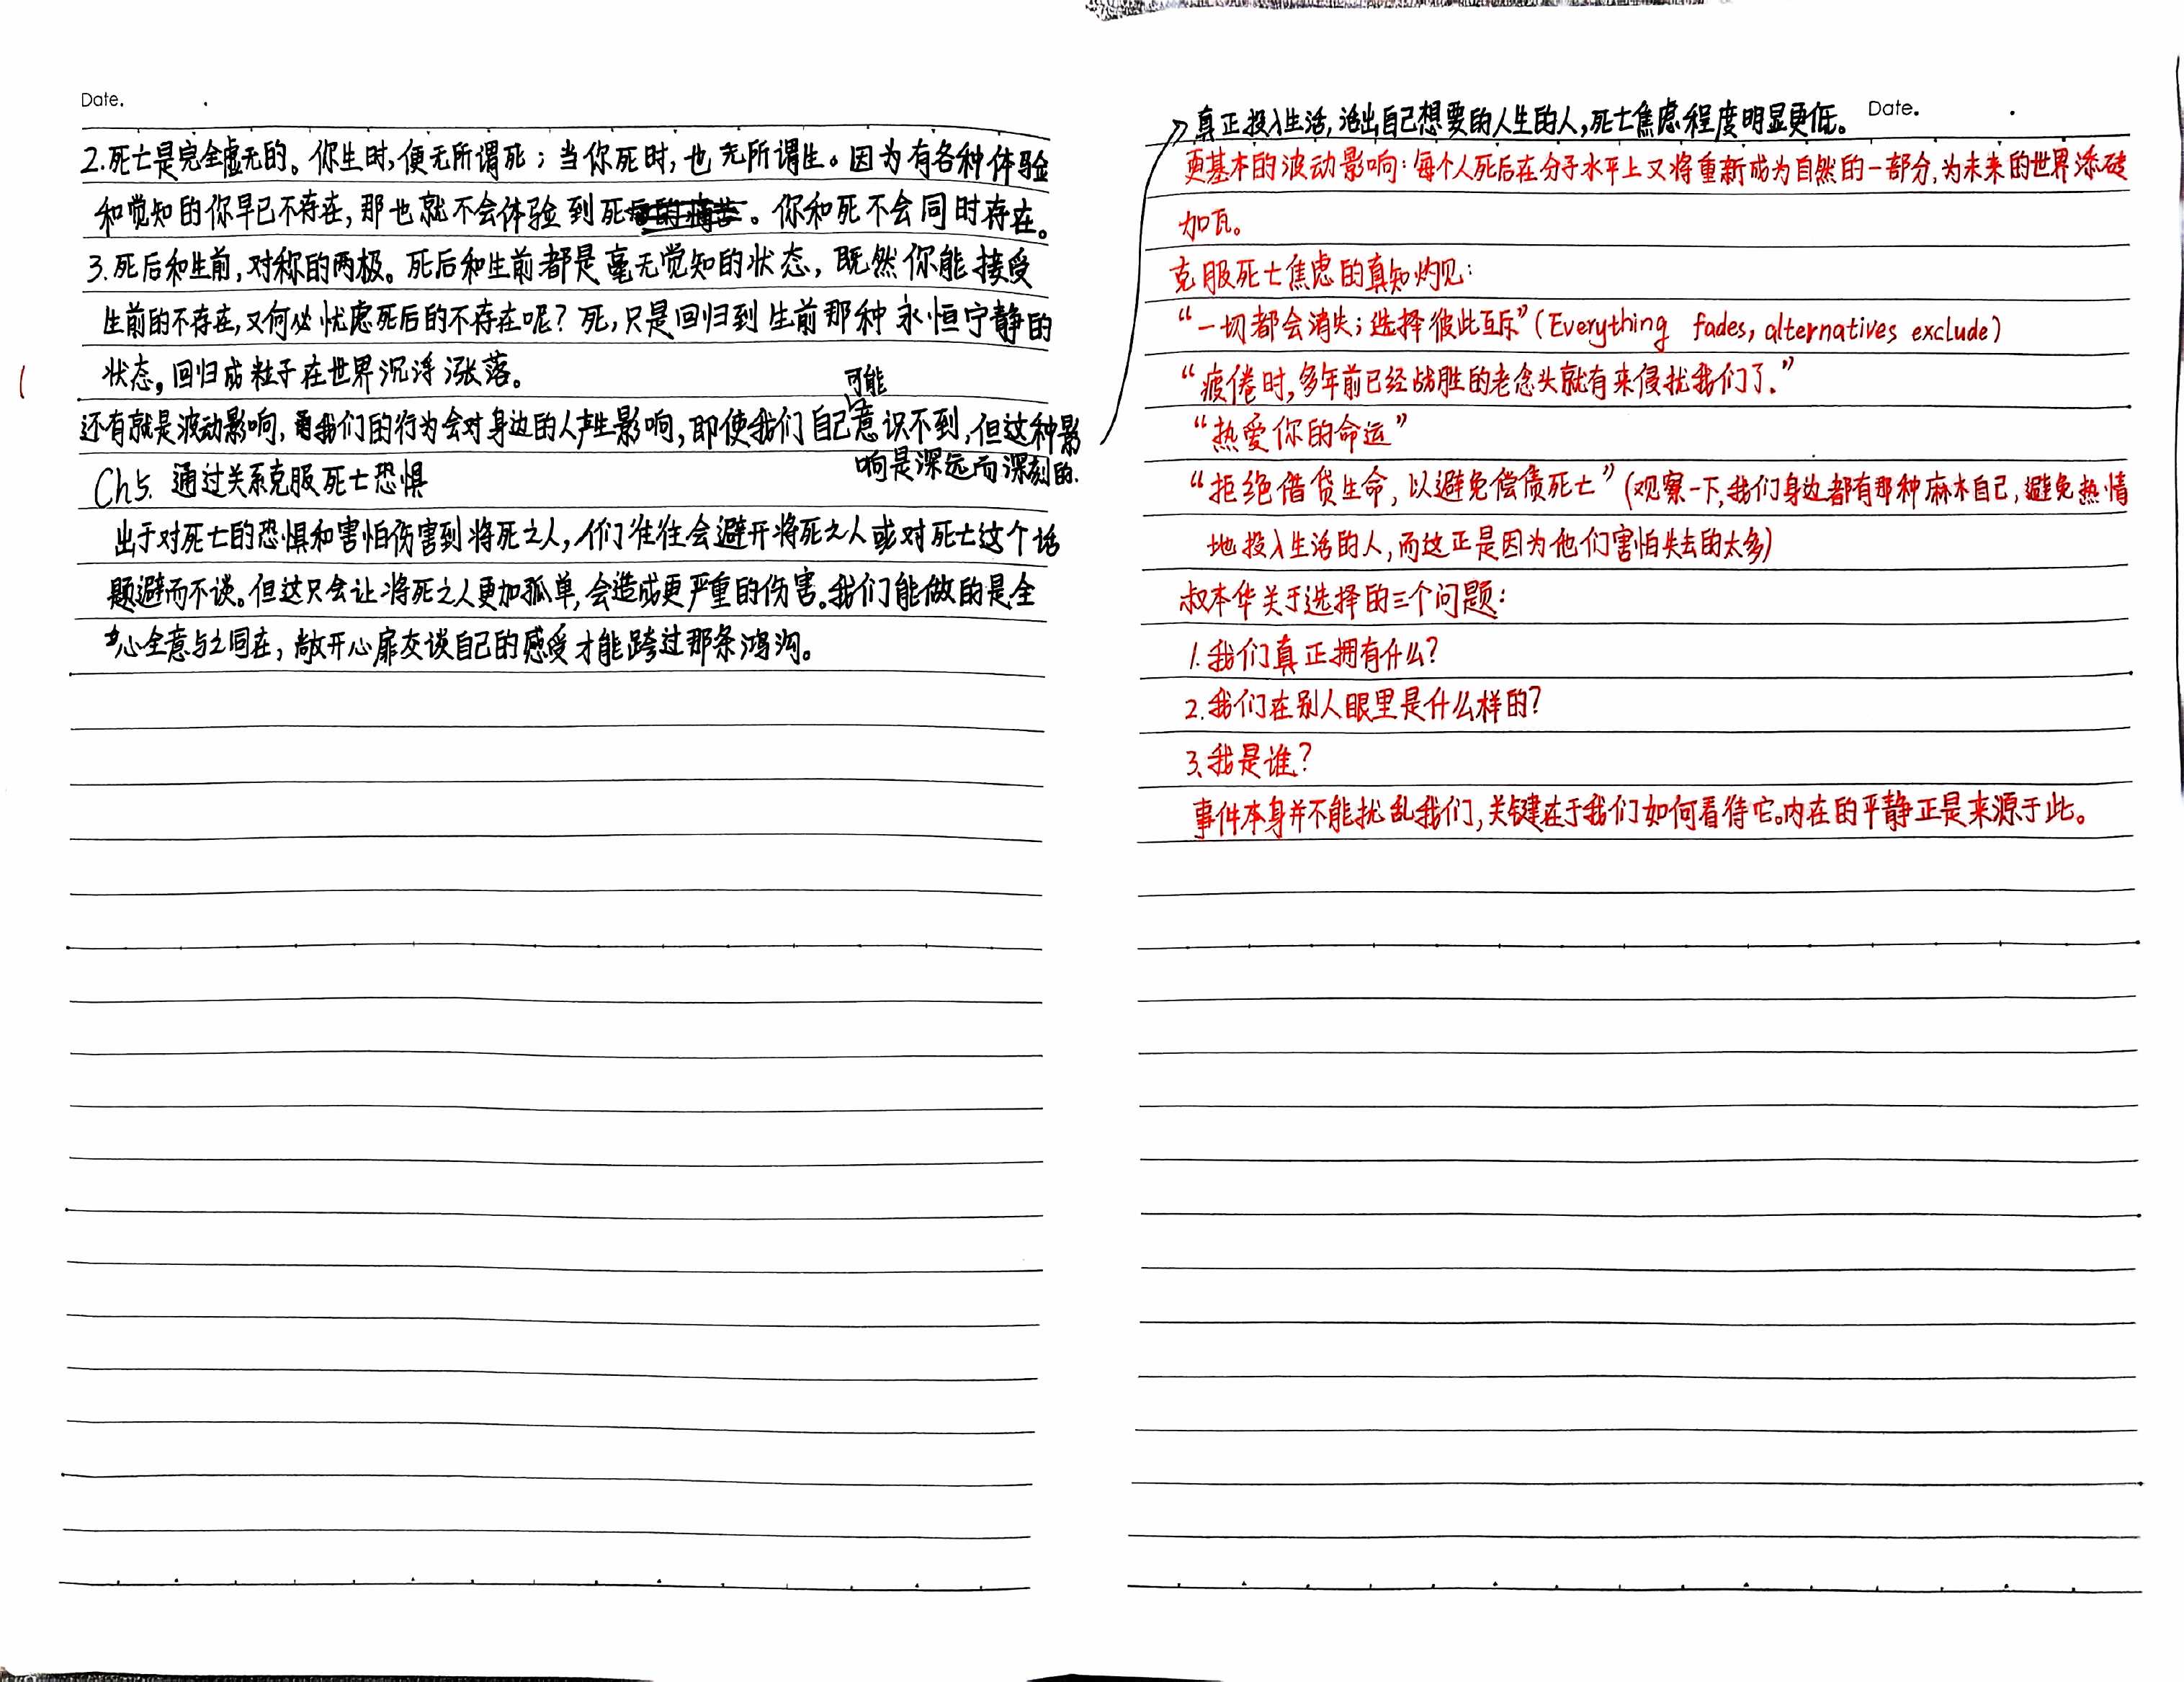 Date.
2.死亡是完全虚无的。你生时,便无所谓死；当你死时,也无所谓生。因为有各种体验
和觉知的你早已不存在,那也就不会体验到死。你和死不会同时存在。
3.死后和生前,对称的两极。死后和生前都是毫无觉知的状态,既然你能接受
生前的不存在,又何必忧虑死后的不存在呢？死,只是回归到生前那种永恒宁静的
状态。回归成粒子在世界沉浮涨落。
还有就是波动影响,我们的行为会对身边的人产生影响,即使我们自己可能意识不到,但这种影
响是深远而深刻的.
Ch5. 通过关系克服死亡恐惧
出于对死亡的恐惧和害怕伤害到将死之人,人们往往会避开将死之人或对死亡这个话
题避而不谈。但这只会让将死之人更加孤单,会造成更严重的伤害。我们能做的是全
心全意与之同在,敞开心扉交谈自己的感受才能跨过那条鸿沟。
真正投入生活,活出自己想要的人生的人,死亡焦虑程度明显更低。
Date.
更基本的波动影响:每个人死后在分子水平上又将重新成为自然的一部分,为未来的世界添砖
加瓦。
克服死亡焦虑的真知灼见:
“一切都会消失；选择彼此互斥”(Everything fades, alternatives exclude)
“疲倦时,多年前已经战胜的老念头就有来侵扰我们了.”
“热爱你的命运”
“拒绝借贷生命,以避免偿债死亡”(观察一下,我们身边都有那种麻木自己,避免热情
地投入生活的人,而这正是因为他们害怕失去的太多)
叔本华关于选择的三个问题:
1.我们真正拥有什么?
2.我们在别人眼里是什么样的?
3.我是谁?
事件本身并不能扰乱我们,关键在于我们如何看待它。内在的平静正是来源于此。